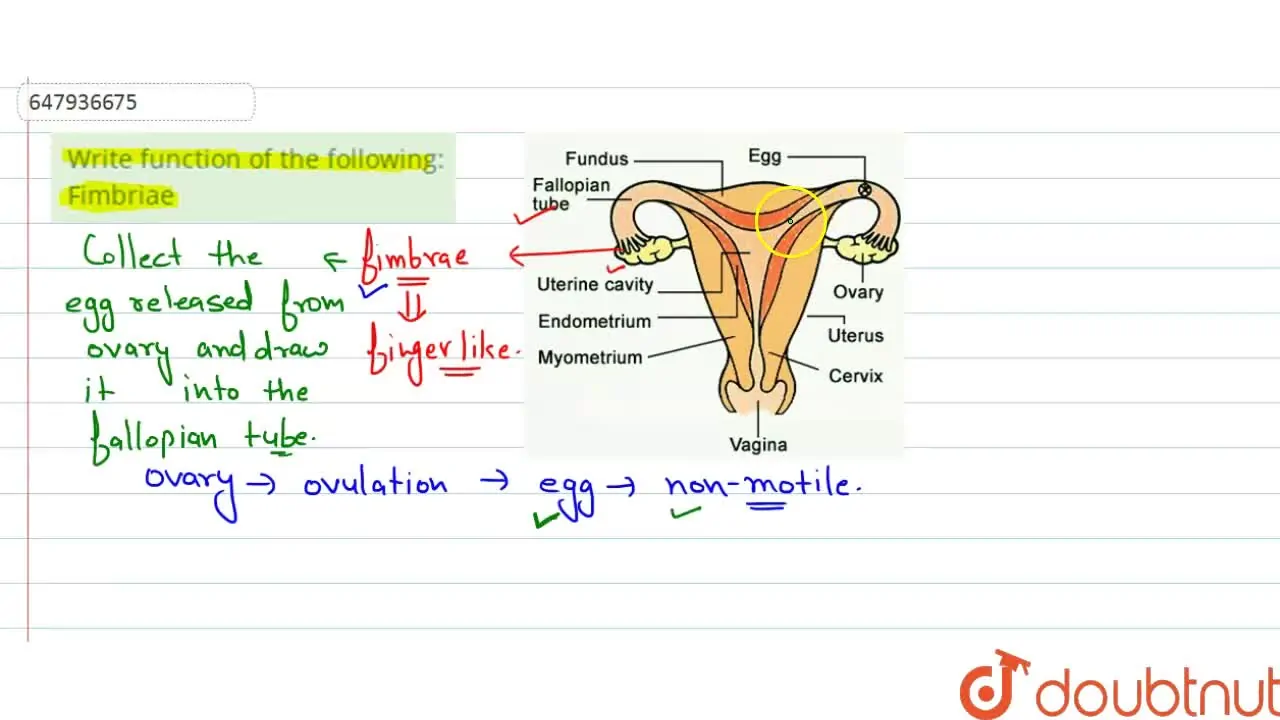 647936675
Write function of the following:
Fimbriae
Collect the ← fimbrae
egg released from
ovary and draw fingerlike.
it into the
fallopian tube.
ovary → ovulation → egg → non-motile.
Fundus
Egg
Fallopian
tube
Uterine cavity
Ovary
Endometrium
Uterus
Myometrium
Cervix
Vagina
doubtnut